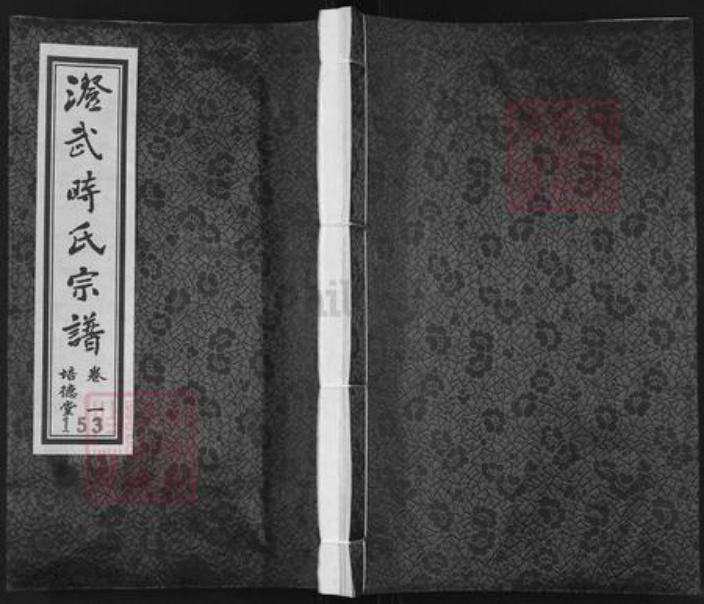 澄武時氏宗譜
卷一
培德堂
153